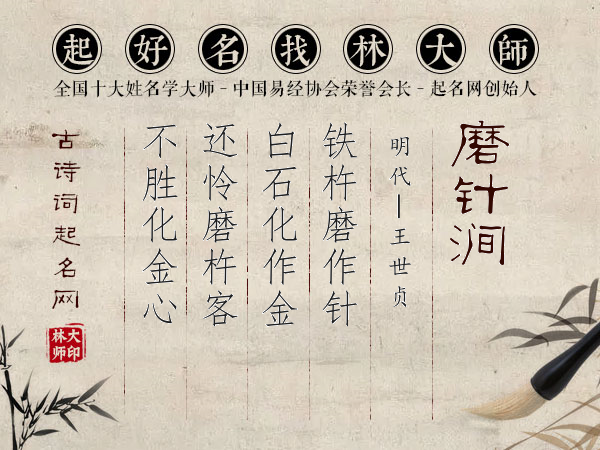 起好名找林大師
全国十大姓名学大师-中国易经协会荣誉会长-起名网创始人
磨针涧
明代—王世贞
铁杵磨作针
白石化作金
还怜磨杵客
不胜化金心
古诗词起名网
林师大印